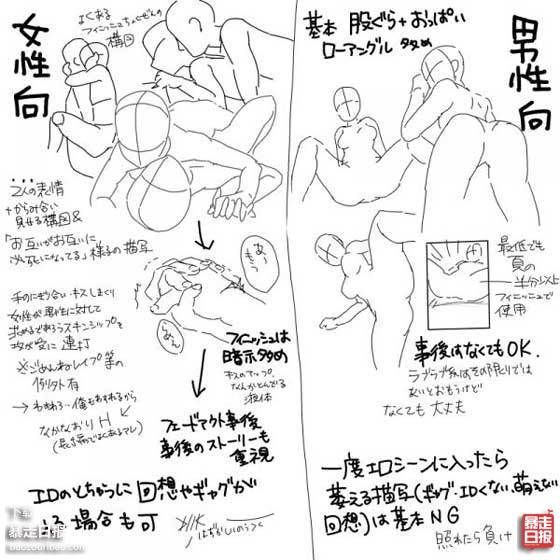 女性向
よくある
フィニッシュちょくぜんの
構図
2人の表情
+からみ合い
見せる構図&
「お互いがお互いに
必死になってる」様子の描写
手のにぎり合い・キスしまくり
女性が男性に対して
求めるであろうスキンシップを
攻が受に連打
※ごめんねレイプ等の
例外有
なかなおりH
フィニッシュは
暗示多め
キスのアップ
なんかとんでる
液体
フェードアウト事後
事後のストーリーも
重視
エロのとちゅうに回想やギャグが
場合も可
男性向
基本 股ぐら+おっぱい
ローアングル多め
最低でも
頁の
半分以上
フィニッシュで
使用
事後はなくてもOK.
ラブラブ系はその限りでは
ないとおもうけど
なくても大丈夫
一度エロシーンに入ったら
萎える描写(ギャグ・エロくない、萌えない
回想)は基本NG
照れたら負け
下午
暴走日报
baozouribao.com
暴走日报